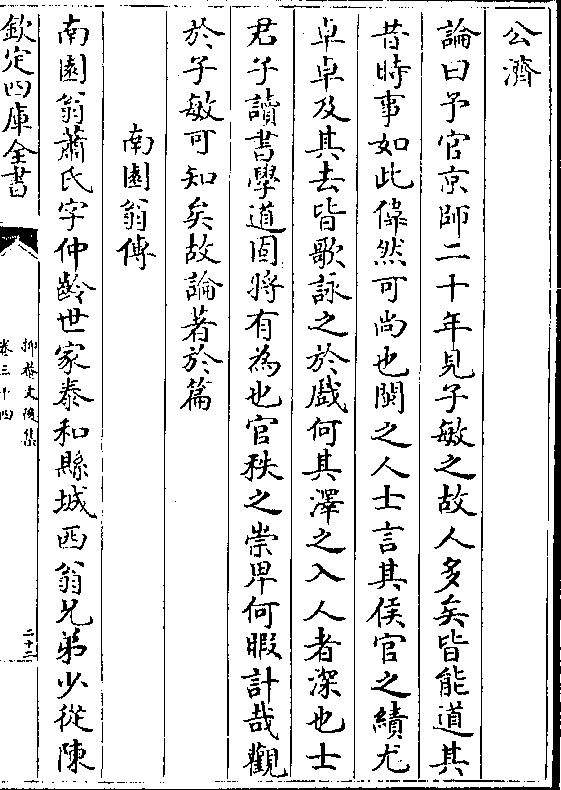 公濟
論曰予官京師二十年見子敏之故人多矣皆能道其
昔時事如此偉然可尚也閩之人士言其侯官之績尤
卓卓及其去皆歌詠之於戲何其澤之入人者深也士
君子讀書學道固將有為也官秩之崇卑何暇計哉觀
於子敏可知矣故論著於篇
南園翁傳
南園翁蕭氏字仲齡世家泰和縣城西翁兄弟少從陳
欽定四庫全書
抑菴文後集
卷三十四
二十二